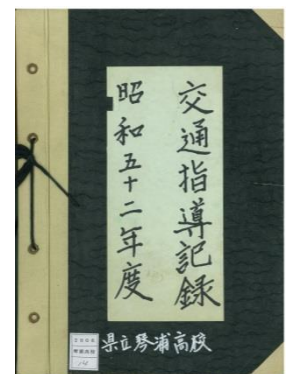 交通指導記録
昭和五十二年度
県立琴浦高校